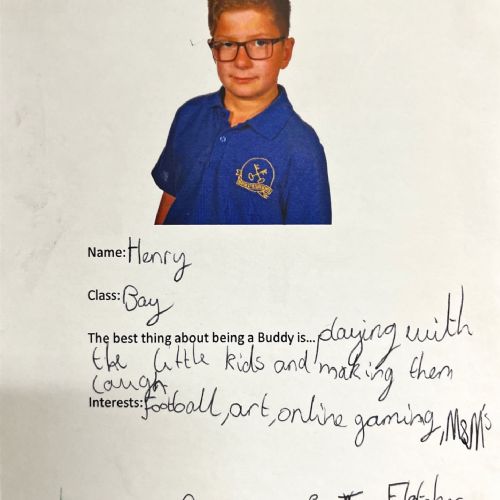 Name: Henry
Class: Bay
The best thing about being a Buddy is... playing with
the little kids and making them
laugh
Interests: football, art, online gaming, M&M's
Fletcher